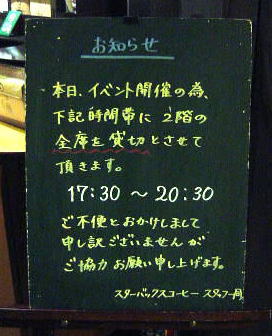 お知らせ
本日、イベント開催の為、
下記時間帯に 2階の
全席を貸切とさせて
頂きます。
17:30 〜 20:30
ご不便をおかけしまして
申し訳ございませんが
ご協力お願い申し上げます。
スターバックスコーヒー スタッフ一同